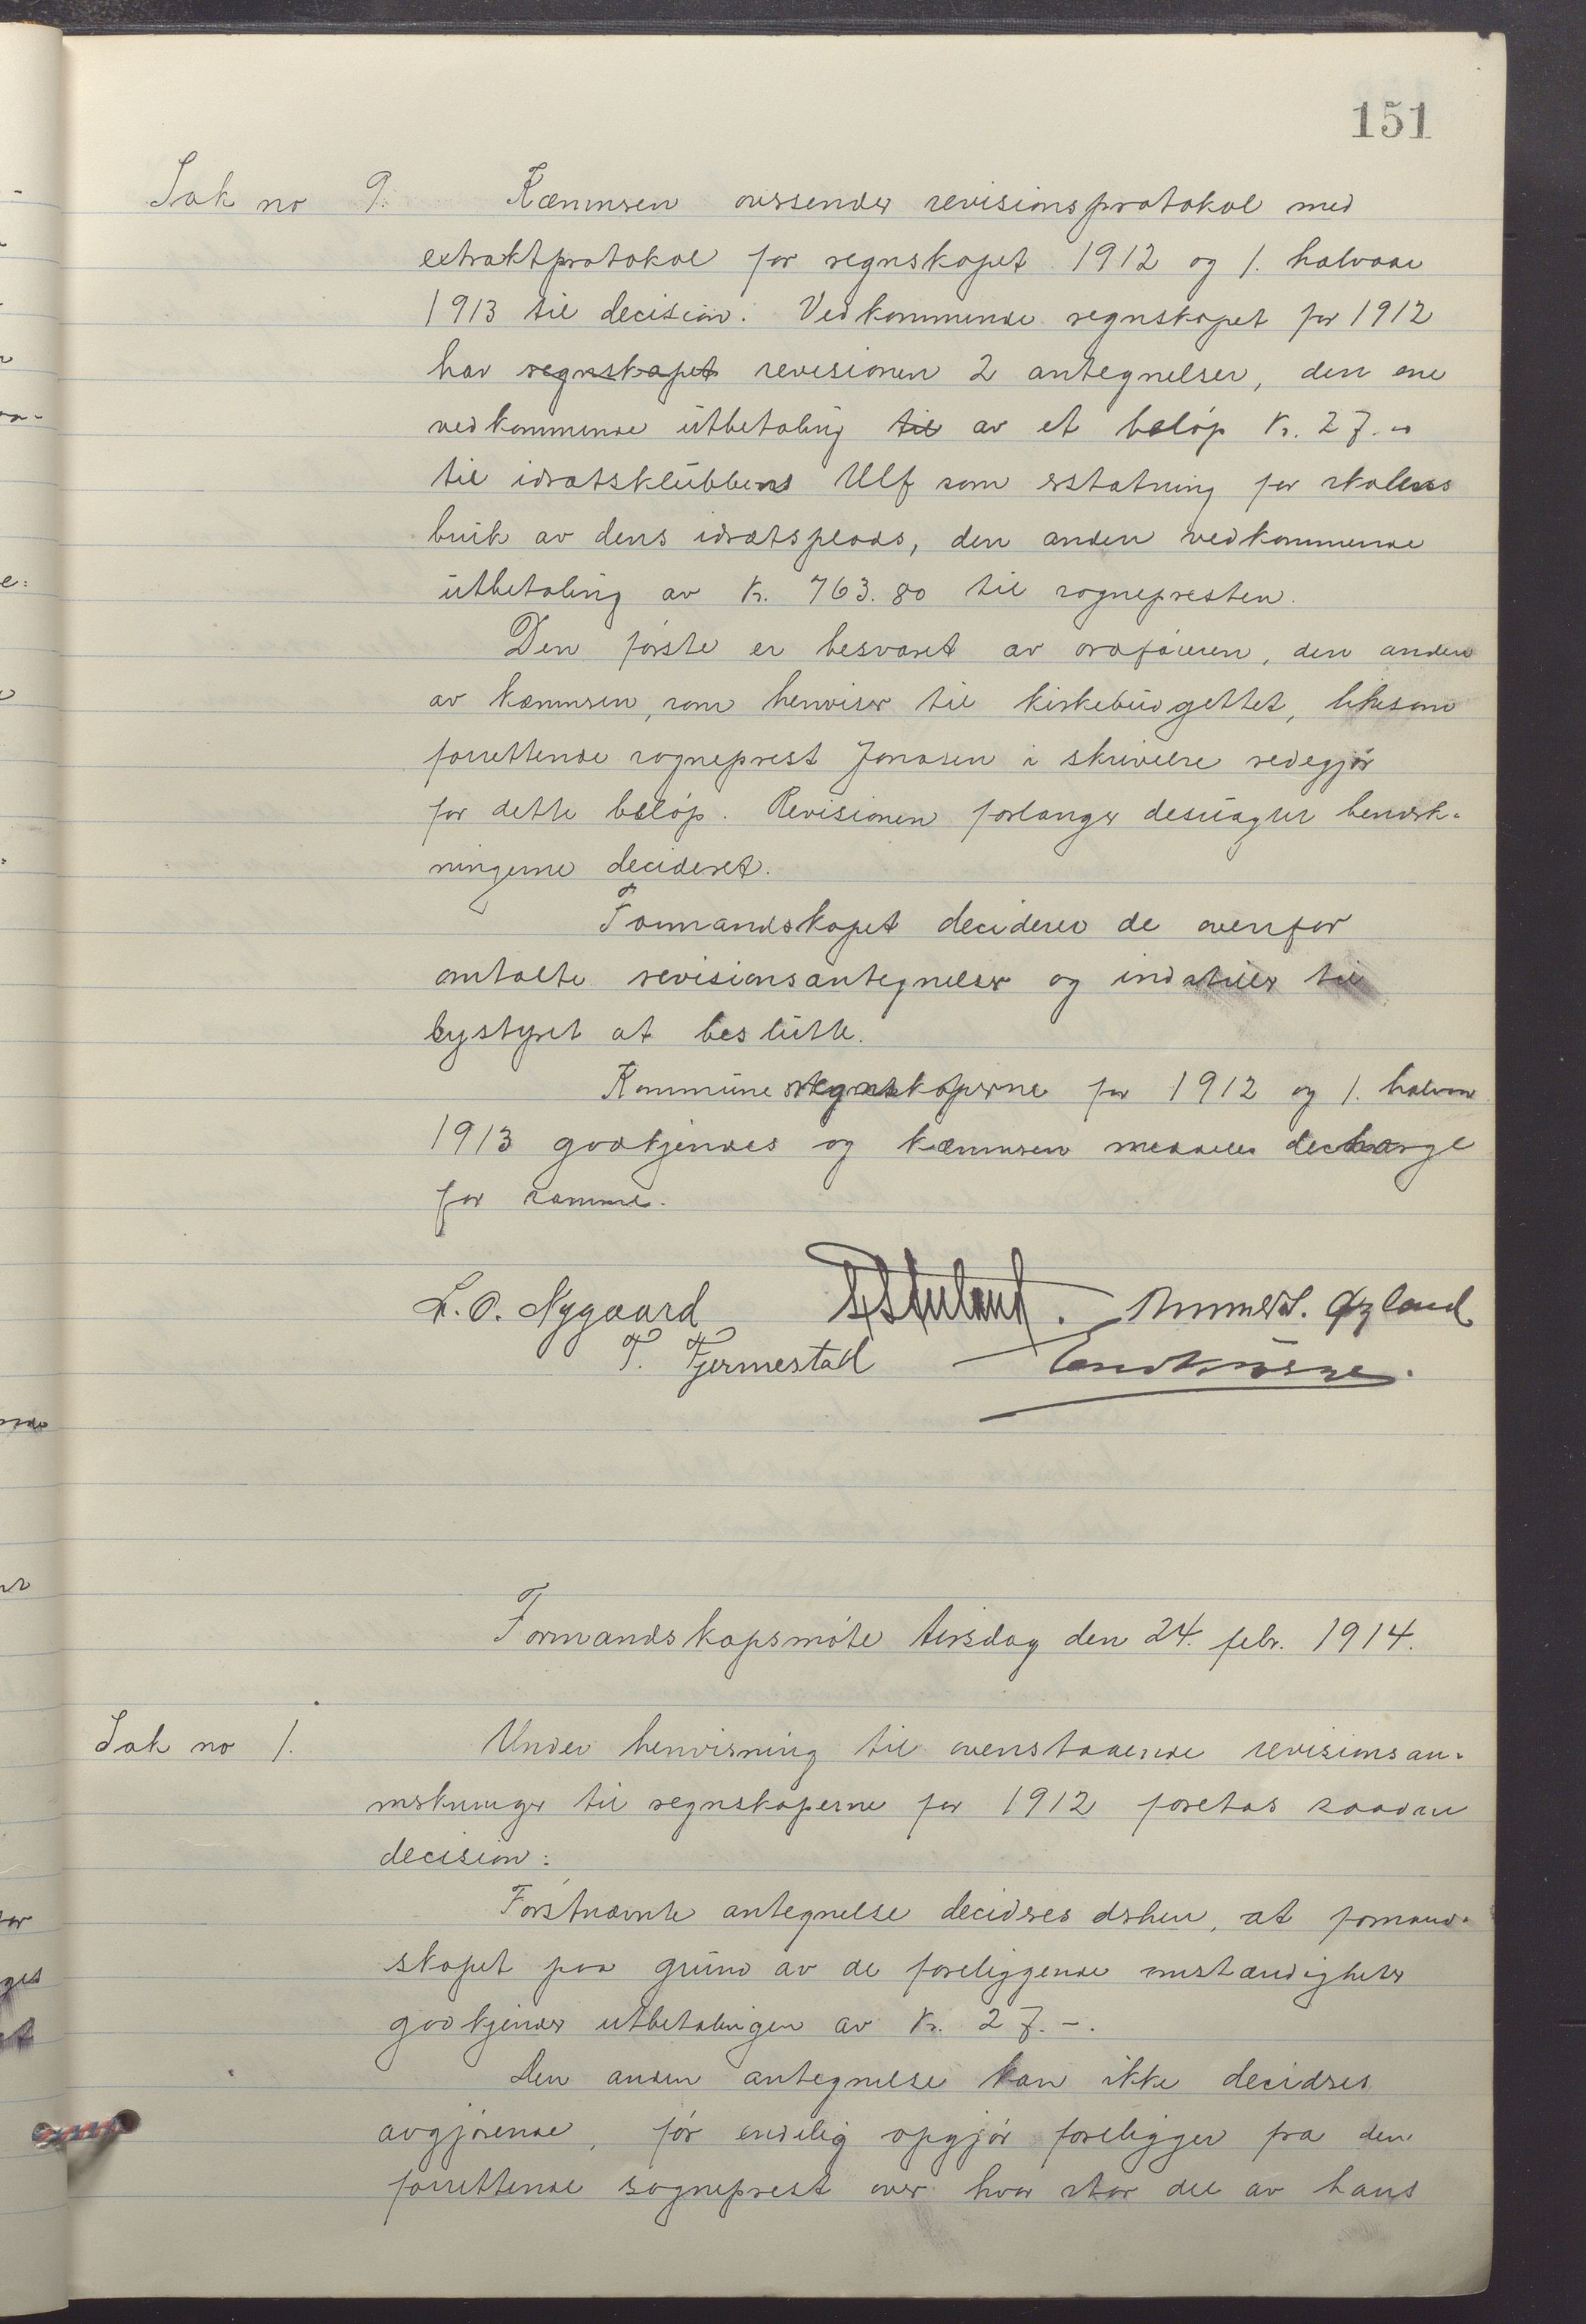 151
Sak no 9. Kæmnsren oversender revisionsprotokol med
extraktprotokol for regnskapet 1912 og 1. halvaar
1913 til decision. Vedkommende regnskapet for 1912
har regnskapet revisionen 2 antegnelser, den ene
vedkommende utbetaling til av et beløp kr. 27.-
til idrætsklubbens Ulf som erstatning for skolens
bruk av dens idrætsplads, den anden vedkommende
utbetaling av kr. 763.80 til sognepresten.
Den første er besvaret av ordføreren, den anden
av kæmnsren, som henviser til kirkebudgettet, likesom
forrettende sogneprest Jonasen i skrivelse redegjør
for dette beløp. Revisionen forlanger desuagtet bemerk-
ningerne decideret.
Formandskapet deciderer de ovenfor
omtalte revisionsantegnelser og indstiller til
bystyret at beslutte.
Kommuneregnskaperne for 1912 og 1. halvaar
1913 godkjendes og kæmnsren meddeles decharge
for samme.
L. O. Nygaard Øgland
T. Tjermestad
Formandskapsmøte tirsdag den 24. febr. 1914.
Sak no 1. Under henvisning til ovenstaaende revisionsan-
merkninger til regnskaperne for 1912 foretas saadan
decision:
Førstnævnte antegnelse decideres derhen, at formand-
skapet paa grund av de foreliggende omstændigheter
godkjender utbetalingen av kr. 27.-.
Den anden antegnelse kan ikke decideres
avgjørende, før endelig opgjør foreligger fra den
forrettende sogneprest over hvor stor del av hans